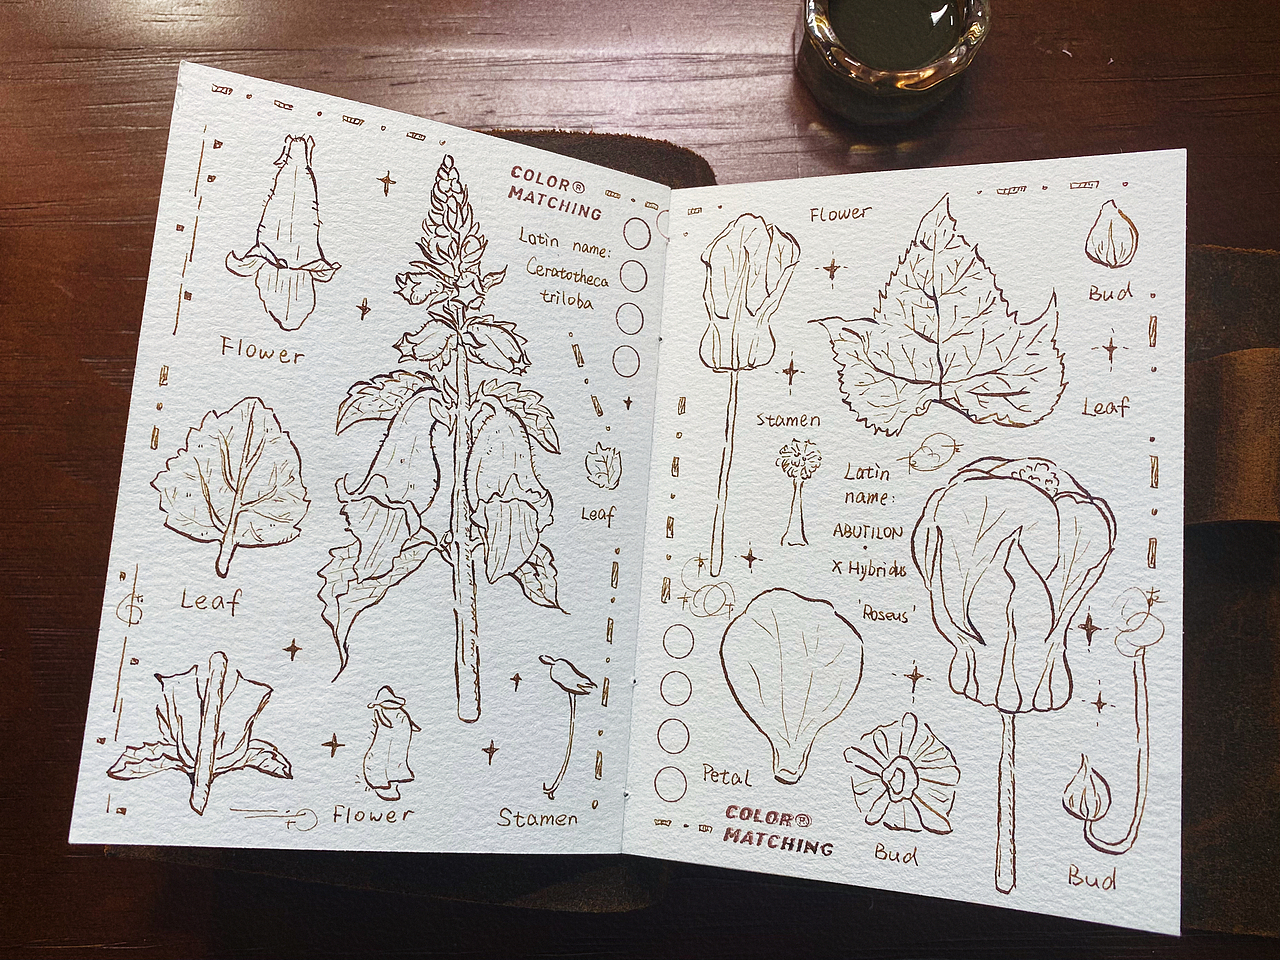 COLOR®
MATCHING
Latin name:
Ceratotheca
triloba
Flower
Leaf
Leaf
Flower
Stamen
Flower
Bud
Leaf
Stamen
Latin
name:
ABUTILON
X Hybridus
'Roseus'
Petal
COLOR®
MATCHING
Bud
Bud